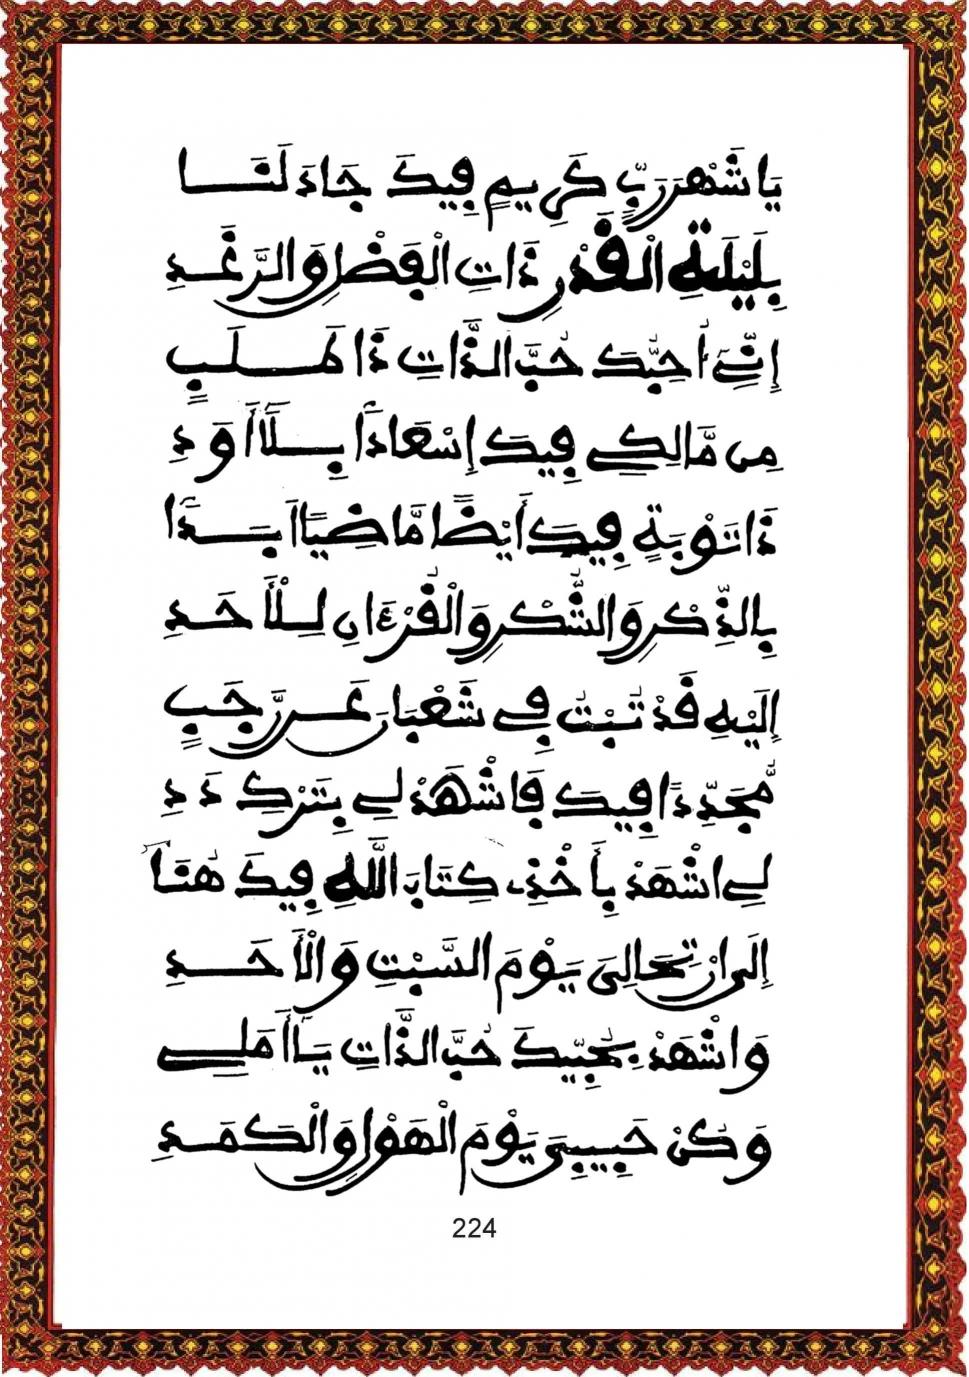 يَا شَهْرَ رَبٍّ كَرِيمٍ فِيكَ جَاءَ لَنَا
بِلَيْلَةِ الْقَدْرِ ذَاتِ الْفَضْلِ وَالرَّغَدِ
إِنِّي أُحِبُّكَ حُبَّ الذَّاتِ ذَا طَلَبٍ
مِن مَّالِكِي فِيكَ إِسْعَادًا بِلَا أَوَدِ
ذَا تَوْبَةٍ فِيكَ أَيْضًا مَّاضِيًا أَبَدًا
بِالذِّكْرِ وَالشُّكْرِ وَالْقُرْءَانِ لِلْأَحَدِ
إِلَيْهِ قَدْ تُبْتُ فِي شَعْبَانَ عَن رَّجَبٍ
مُّجَدِّدًا فِيكَ فَاشْهَدْ لِي بِتَرْكِ دَدِ
لِي اشْهَدْ بِأَخْذِ كِتَابَ اللَّهِ فِيكَ هُنَا
إِلَى ارْتِحَالِيَ يَوْمَ السَّبْتِ وَالْأَحَدِ
وَاشْهَدْ بِحُبِّيكَ حُبَّ الذَّاتِ يَا أَمَلِي
وَكُنْ حَبِيبِيَ يَوْمَ الْهَوْلِ وَالْكَمَدِ
224